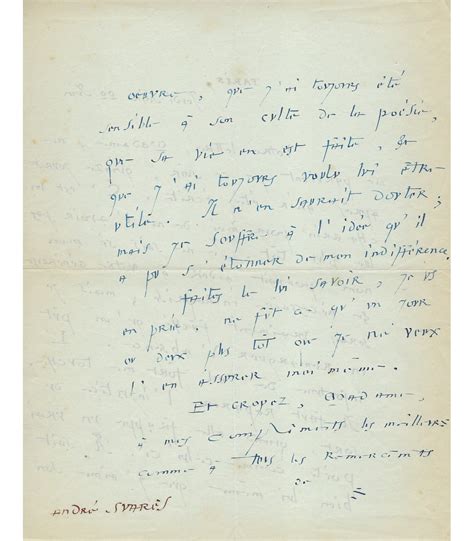 oeuvre, que j'ai toujours été
sensible à son culte de la poésie,
que sa vie en est faite, &
que j'ai toujours voulu lui être
utile. Il n'en saurait douter;
mais je souffre à l'idée qu'il
a pu s'étonner de mon indifférence.
faites le lui savoir, je vs
en prie, ne fût ce qu'un jour
ou deux plus tôt que je ne veux
l'en assurer moi même.
Et croyez, Madame,
à mes compliments les meilleurs
comme à tous les remerciements
de
ANDRÉ SUARÈS